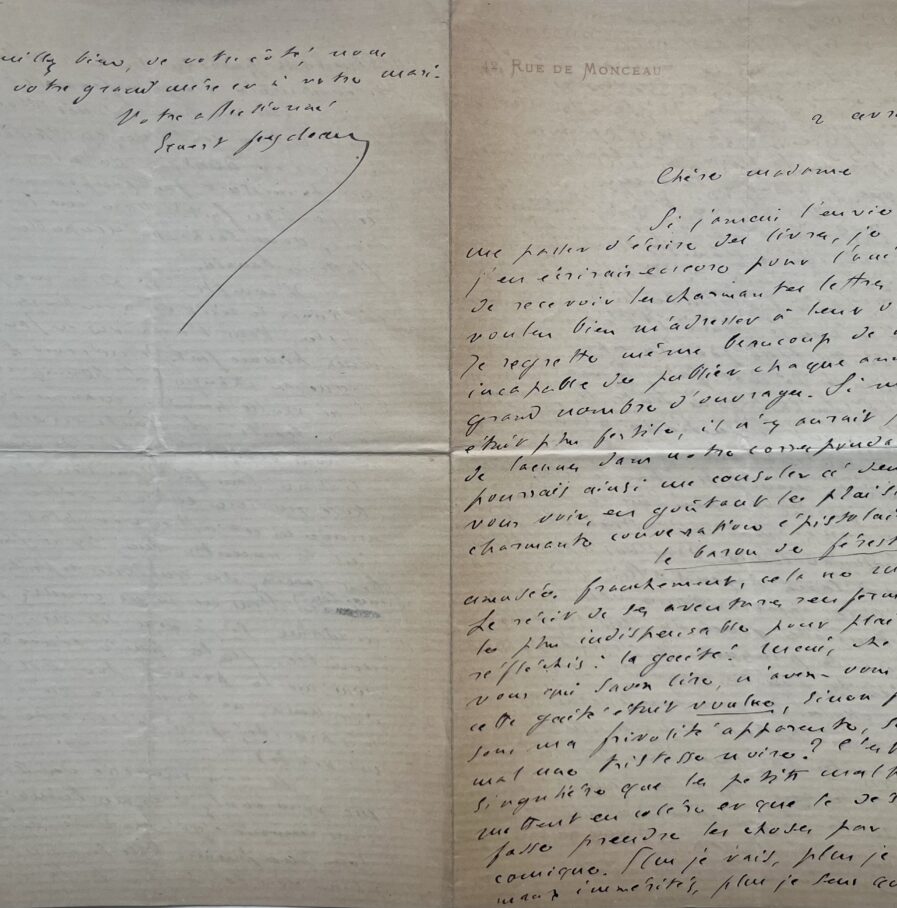 bien, de votre côté, nous
votre grand mère et à votre mari.
Votre affectionné
Ernest Feydeau
42, RUE DE MONCEAU
2 avr
Chère madame
Si jamais l'envie
me passer d'écrire des livres, je
j'en écrirais encore pour
de recevoir les charmantes lettres
voulez bien m'adresser à leur
Je regrette même beaucoup de
incapable de publier chaque
grand nombre d'ouvrages. Si
était plus fertile, il n'y aurait
de lacunes dans notre
pourrais ainsi me consoler de
vous voir, en goûtant les
charmante conversation
le baron de
amusée. franchement, cela ne
Le récit de ses aventures
le plus indispensable pour
réfléchis: la gaîté! Mais,
vous qui savez lire, n'avez-vous
cette gaîté était voulue, sinon
sous ma frivolité apparente,
mal une tristesse noire?
singulière que les petits
mettent en colère et que le
fasse prendre les choses par
comique. Plus je vais, plus je
maux immérités, plus je sens